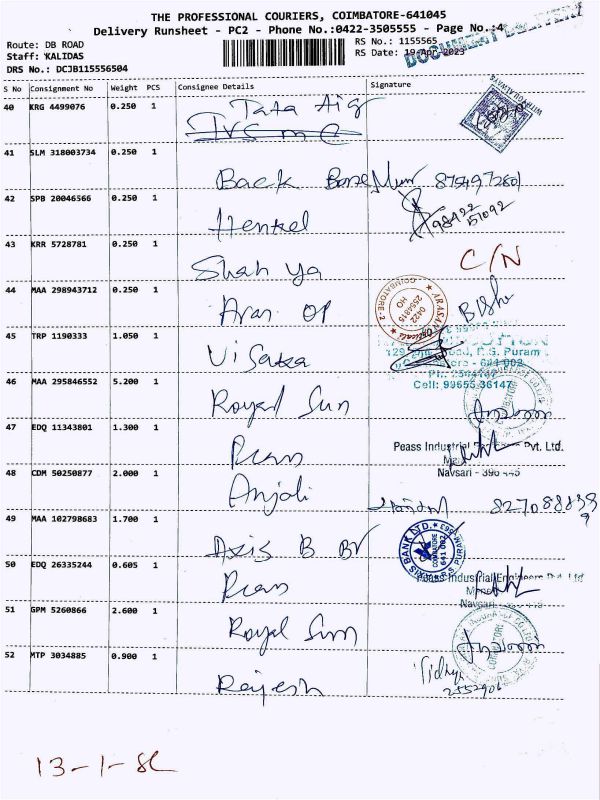 THE PROFESSIONAL COURIERS, COIMBATORE-641045
Delivery Runsheet - PC2 - Phone No.:0422-3505555 - Page No.:4
Route: DB ROAD
RS No.: 1155565
DOCUMENT DELIVERY
Staff: KALIDAS
RS Date: 19-Apr-2023
DRS No.: DCJB115556504
S No Consignment No Weight PCS Consignee Details Signature
40 KRG 4499076 0.250 1 Tata Aig
41 SLM 318003734 0.250 1
Back Bone 8754972601
42 SPB 20046566 0.250 1
Henkel 98422 51092
43 KRR 5728781 0.250 1 C/N
Shah ya
44 MAA 298943712 0.250 1
COIMBATORE-2 ARASAN HO 2554815 0422
45 TRP 1190333 1.050 1
R.S. Puram
641 002
Cell: 99655 36147
46 MAA 295846552 5.200 1
Royal Sun
47 EDQ 11343801 1.300 1
Peass Industrial Pvt. Ltd.
Navsari - 396 445
48 CDM 50250877 2.000 1
Anjali
49 MAA 102798683 1.700 1
Axis B Br AXIS BANK LTD. COIMBATORE 641 002
50 EDQ 26335244 0.605 1
Peass Industrial Engineers Pvt. Ltd
Navsari
51 GPM 5260866 2.600 1
Royal Sun
52 MTP 3034885 0.900 1
Vidhya
2552906
Rajesh